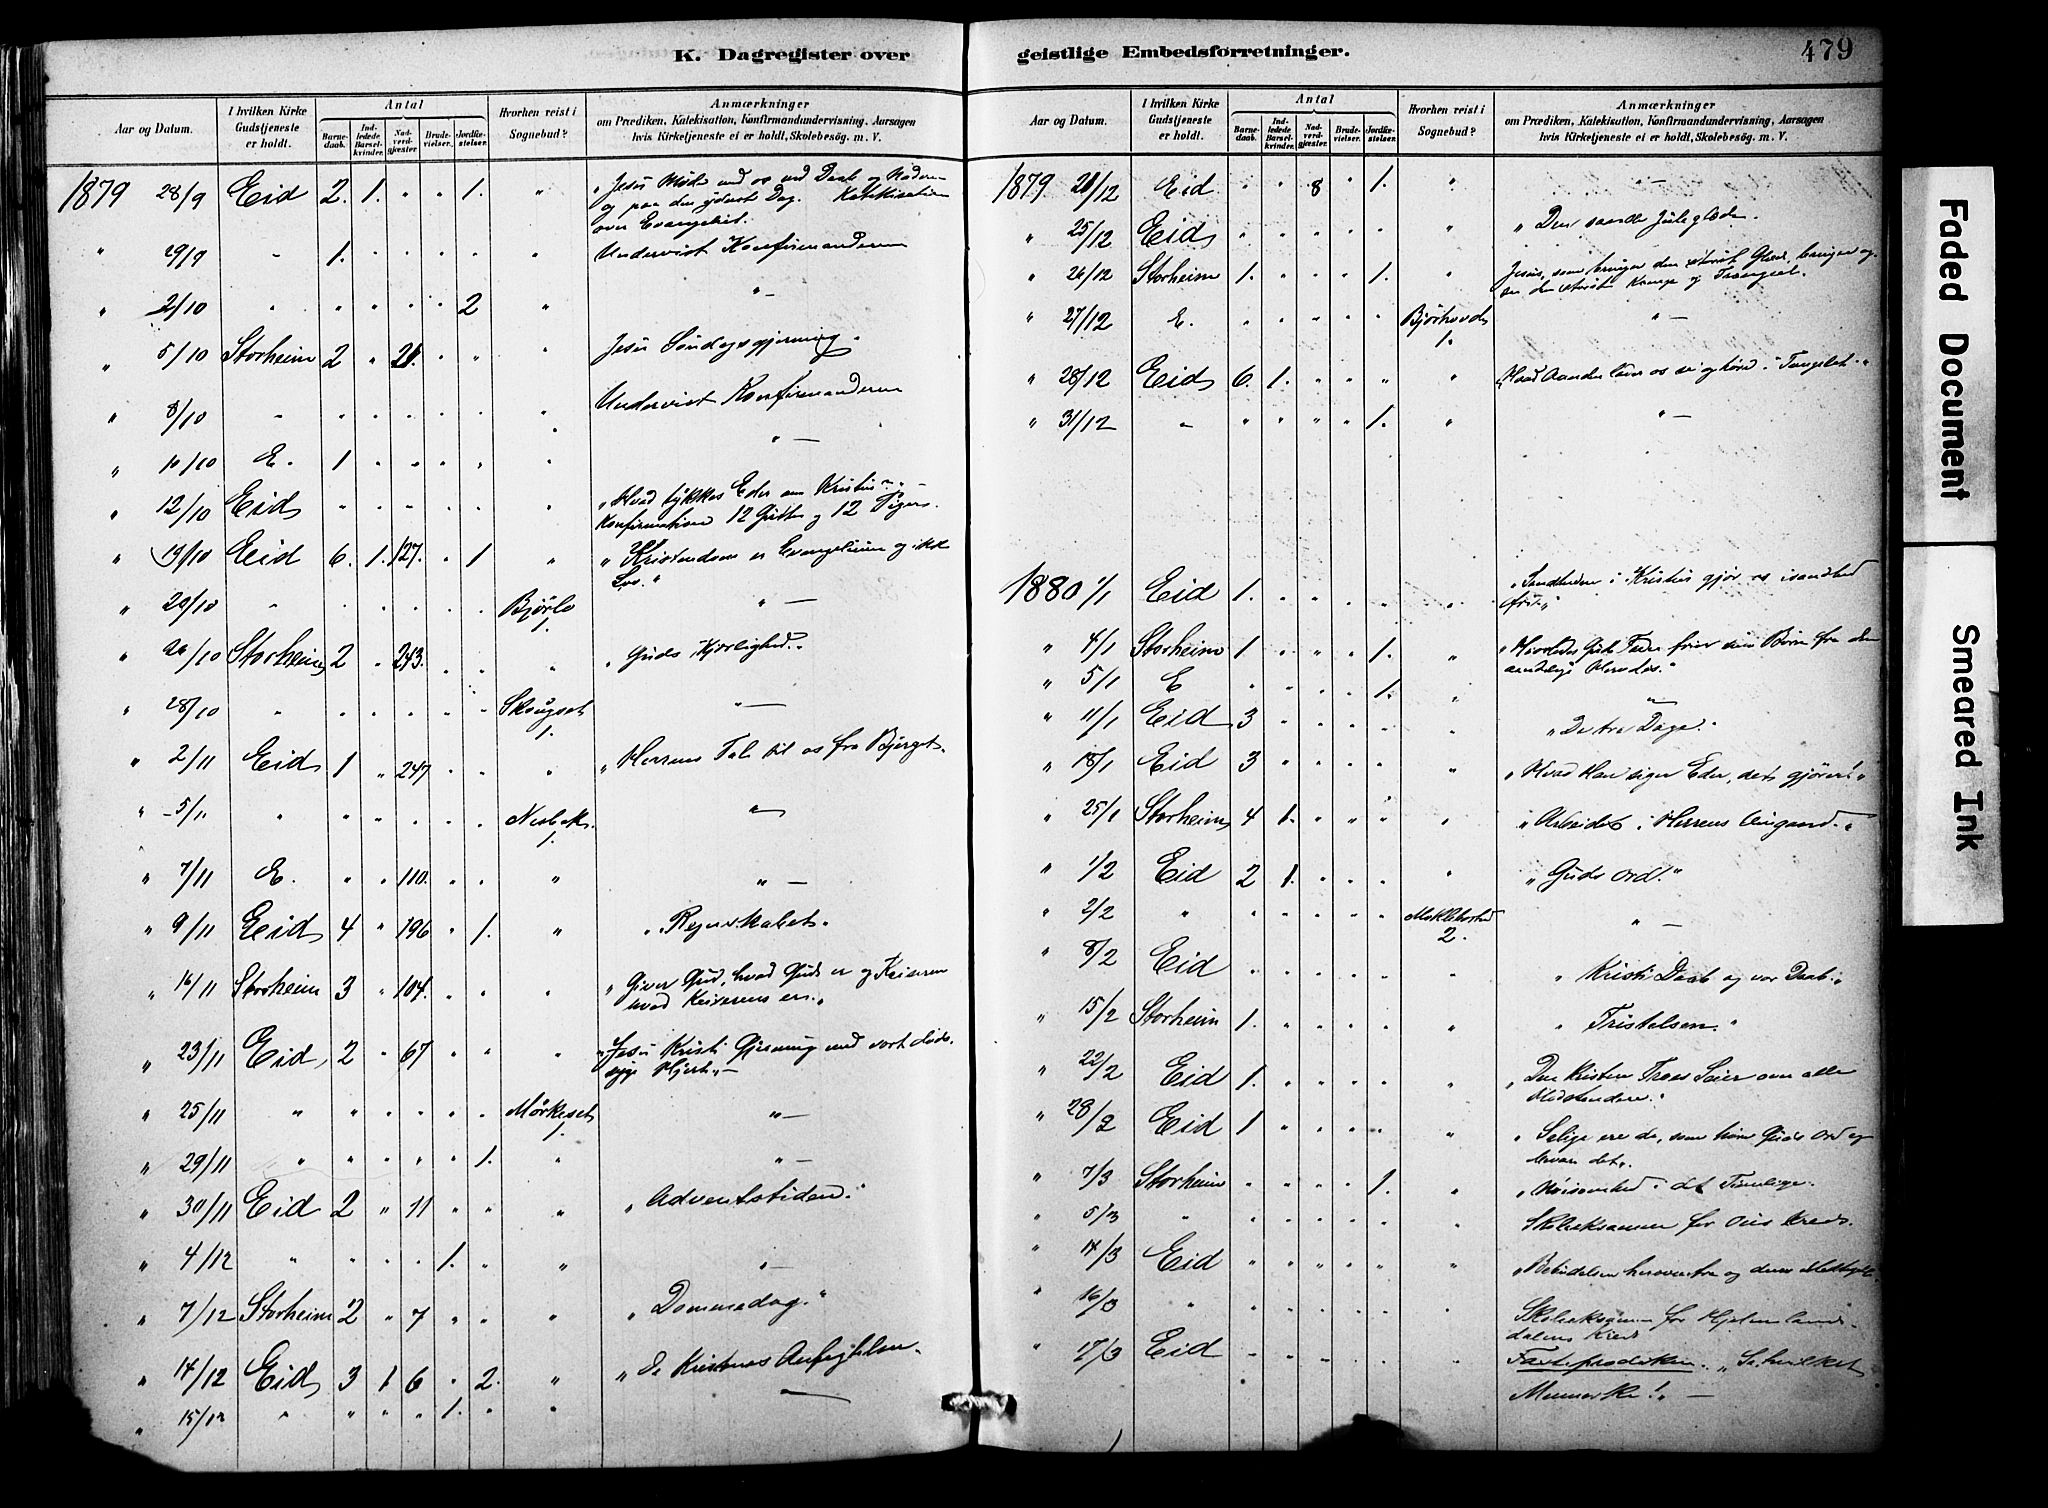 K. Dagregister over
Aar og Datum.
I hvilken Kirke Gudstjeneste er holdt.
Antal
Barnedaab.
Indledede Barselkvinder.
Nadverdgjæster.
Brudevielser.
Jordfæstelser.
Hvorhen reist i Sognebud?
Anmærkninger
om Prædiken, Katekisation, Konfirmandundervisning, Aarsagen
hvis Kirketjeneste ei er holdt, Skolebesög. m. V.
1879 28/9 Eid 2. 1. " " 1. " "Jesu Møde med os ved Daab og Nadver
og paa den yderste Dag. Katekisation
over Evangeliet.
" 29/9 " 1. " " " " " Undervist Konfirmanderne
" 2/10 " " " " " 2 " " —
" 5/10 Storheim 2 " 21. " " " Jesu Søndagsgjerning.
" 8/10 " " " " " " " Undervist Konfirmanderne
" 10/10 E. 1 " " " " " " —
" 12/10 Eid " " " " " " "Hvad tykkes Eder om Kristus?"
Konfirmation 12 Gutter og 12 Piger.
" 19/10 Eid 6. 1. 127. " 1 " "Kristendom er Evangelium og ikke
Lov."
" 20/10 " " " " " " Bjørlo 1. " —
" 26/10 Storheim 2 " 243. " " " "Guds Kjærlighed."
" 28/10 " " " " " " Skougset 1. " —
" 2/11 Eid 1 " 247 " " " "Herrens Tale til os fra Bjerget.
" 5/11 " " " " " " 1. " —
" 7/11 E. " " 110. " " " " —
" 9/11 Eid 4 " 196 " 1. " "Regnskabet."
" 16/11 Storheim 3 " 104. " " " "Giver Gud, hvad Guds er og Keiseren
hvad Keiserens er."
" 23/11 Eid 2 " 67 " " " "Jesu Kristi Gjerning med vort døds-
syge Hjerte." —
" 25/11 " " " " " " Mørkeset 1. " —
" 29/11 " " " " " 1. " " —
" 30/11 Eid 2 " 11 " " " "Adventstiden."
" 4/12 " " " " 1. " " " —
" 7/12 Storheim 2 " 7 " " " "Dommedag."
" 14/12 Eid 3 1 6 " 2. " "de Kristnes Anfegtelser.
" 15/12 " " " " 1. " " —
geistlige Embedsforretninger.
479
Aar og Datum.
I hvilken Kirke Gudstjeneste er holdt.
Antal
Barnedaab.
Indledede Barselkvinder.
Nadverdgjæster.
Brudevielser.
Jordfæstelser.
Hvorhen reist i Sognebud?
Anmærkninger
om Prædiken, Katekisation, Konfirmandundervisning, Aarsagen
hvis Kirketjeneste ei er holdt, Skolebesög. m. V.
1879 21/12 Eid " " 8 " 1. " " —
" 25/12 Eid " " " " " " "Den sande Juleglæde.
" 26/12 Storheim 1. " " " 1. " Jesus, som bringer den største Glæde, bringer og-
saa den største Kamp og Trængsel.
" 27/12 E. " " " " " 1. " —
" 28/12 Eid 6. 1. " " " " "Hvad Aanden lærer os se og høre i Templet."
" 31/12 " " " " " 1. " " —
1880 1/1 Eid 1. " " " " " "Sandheden i Kristus gjør os isandhed
fri."
" 4/1 Storheim 1 " " " 1. " "Hvorledes Gud Fader frier sine Børn fra den
aandelige Herodes."
" 5/1 E " " " " 1. " "
" 11/1 Eid 3 " " " " " "De tre Dage."
" 18/1 Eid 3 " " " " " "Hvad Han siger Eder, det gjører!"
" 25/1 Storheim 4 1. " " " " "Arbeidet i Herrens Vingaard."
" 1/2 Eid 2 1. " " " " "Guds Ord."
" 2/2 " " " " " " Myklebostad 2. " —
" 8/2 Eid " " " " " " "Kristi Daab og vor Daab."
" 15/2 Storheim 1. " " " " " "Fristelsen."
" 22/2 Eid 1. " " " " " "Den Kristne Troes Seier over alle
Modstandere."
" 29/2 Eid 1 " " " " " "Salige ere de, som høre Guds Ord og
bevare det".
" 7/3 Storheim " " " " 1. " "Nøisomhed i det Timelige.
" 5/3 " " " " " " " Skoleeksamen for Kreds.
" 14/3 Eid " " " " " " "Bebudelsen herovenfra og
" 16/3 " " " " " " " Skoleeksamen for Hjelmelands-
dalens Kreds
" 17/3 Eid " " " " " " Fasteprædiken. "Se hvilket
Menneske!" —
Faded Document
Smeared Ink